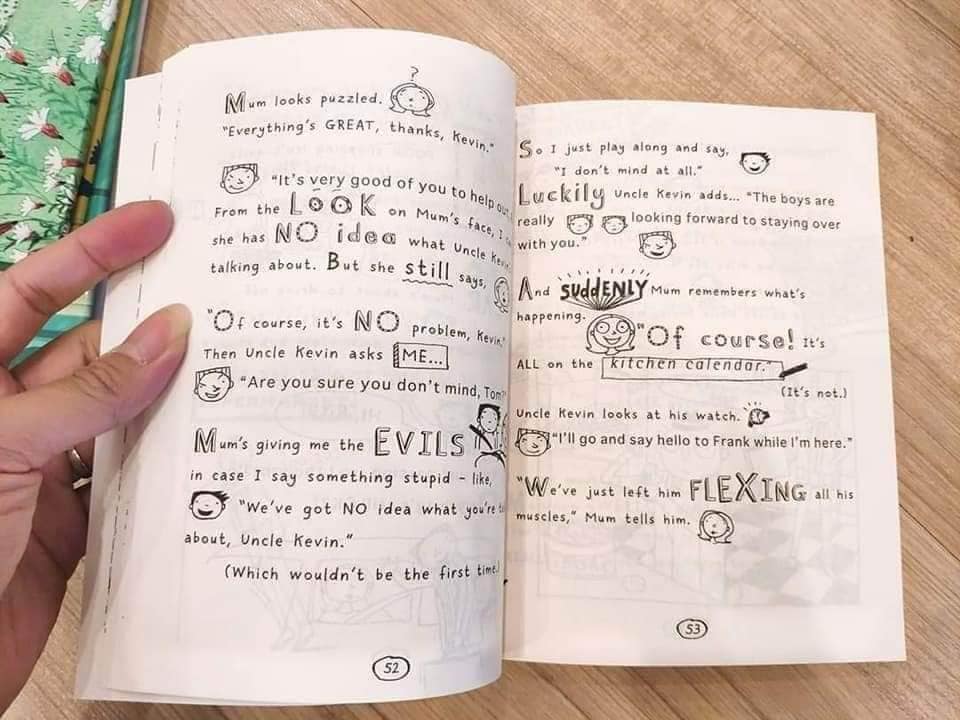 ?
Mum looks puzzled.
"Everything's GREAT, thanks, Kevin."
"It's very good of you to help out.
From the LOOK on Mum's face, I
she has NO idea what Uncle Kevin
talking about. But she still says,
"Of course, it's NO problem, Kevin."
Then Uncle Kevin asks ME...
"Are you sure you don't mind, Tom?"
Mum's giving me the EVILS
in case I say something stupid – like,
"We've got NO idea what you're
about, Uncle Kevin."
(Which wouldn't be the first time.)
52
So I just play along and say,
"I don't mind at all."
Luckily Uncle Kevin adds... "The boys are
really looking forward to staying over
with you."
And SUddENLY Mum remembers what's
happening.
"Of course! It's
ALL on the kitchen calendar."
(It's not.)
Uncle Kevin looks at his watch.
"I'll go and say hello to Frank while I'm here."
"We've just left him FLEXING all his
muscles," Mum tells him.
53